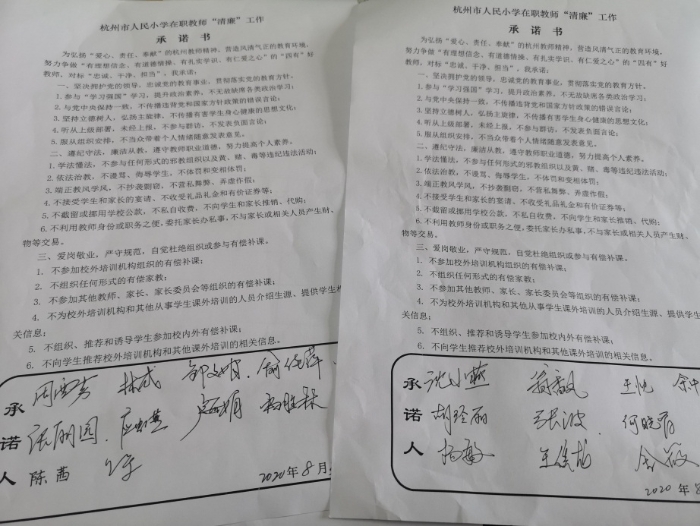 杭州市人民小学在职教师“清廉”工作
承 诺 书
为弘扬“爱心、责任、奉献”的杭州教师精神，营造风清气正的教育环境，
努力争做“有理想信念、有道德情操、有扎实学识、有仁爱之心”的“四有”好
教师，对标“忠诚、干净、担当”，我承诺：
一、坚决拥护党的领导，忠诚党的教育事业，贯彻落实党的教育方针。
1.参与“学习强国”学习，提升政治素养，不无故缺席各类政治学习；
2.与党中央保持一致，不传播违背党和国家方针政策的错误言论；
3.坚持立德树人，弘扬主旋律，不传播有害学生身心健康的思想文化；
4.听从上级部署，未经上报，不参与群访、不发表负面言论；
5.服从组织安排，不当众带着个人情绪随意发表意见。
二、遵纪守法，廉洁从教，遵守教师职业道德，努力提高个人素养。
1.学法懂法，不参与任何形式的邪教组织以及黄、赌、毒等违纪违法活动；
2.依法治教，不谩骂、侮辱学生，不体罚和变相体罚；
3.端正教风学风，不抄袭剽窃、不营私舞弊、弄虚作假；
4.不接受学生和家长的宴请、不收受礼品礼金和有价证券等；
5.不截留或挪用学校公款，不私自收费，不向学生和家长推销、代购；
6.不利用教师身份或职务之便，委托家长办私事，不与家长或相关人员产生财、
物等交易。
三、爱岗敬业，严守规范，自觉杜绝组织或参与有偿补课。
1. 不参加校外培训机构组织的有偿补课；
2. 不组织任何形式的有偿家教；
3. 不参加其他教师、家长、家长委员会等组织的有偿补课；
4. 不为校外培训机构和其他从事学生课外培训的人员介绍生源、提供学生
关信息；
5. 不组织、推荐和诱导学生参加校内外有偿补课；
6. 不向学生推荐校外培训机构和其他课外培训的相关信息。
承
诺
人
林威
张丽园
陈茜
2020年8月
杭州市人民小学在职教师“清廉”工作
承 诺 书
为弘扬“爱心、责任、奉献”的杭州教师精神，营造风清气正的教育环境，
努力争做“有理想信念、有道德情操、有扎实学识、有仁爱之心”的“四有”好
教师，对标“忠诚、干净、担当”，我承诺：
一、坚决拥护党的领导，忠诚党的教育事业，贯彻落实党的教育方针。
1.参与“学习强国”学习，提升政治素养，不无故缺席各类政治学习；
2.与党中央保持一致，不传播违背党和国家方针政策的错误言论；
3.坚持立德树人，弘扬主旋律，不传播有害学生身心健康的思想文化；
4.听从上级部署，未经上报，不参与群访、不发表负面言论；
5.服从组织安排，不当众带着个人情绪随意发表意见。
二、遵纪守法，廉洁从教，遵守教师职业道德，努力提高个人素养。
1.学法懂法，不参与任何形式的邪教组织以及黄、赌、毒等违纪违法活动；
2.依法治教，不谩骂、侮辱学生，不体罚和变相体罚；
3.端正教风学风，不抄袭剽窃、不营私舞弊、弄虚作假；
4.不接受学生和家长的宴请、不收受礼品礼金和有价证券等；
5.不截留或挪用学校公款，不私自收费，不向学生和家长推销、代购；
6.不利用教师身份或职务之便，委托家长办私事，不与家长或相关人员产生财
物等交易。
三、爱岗敬业，严守规范，自觉杜绝组织或参与有偿补课。
1. 不参加校外培训机构组织的有偿补课；
2. 不组织任何形式的有偿家教；
3. 不参加其他教师、家长、家长委员会等组织的有偿补课；
4. 不为校外培训机构和其他从事学生课外培训的人员介绍生源、提供学生
关信息；
5. 不组织、推荐和诱导学生参加校内外有偿补课；
6. 不向学生推荐校外培训机构和其他课外培训的相关信息。
承 沈小燕
诺 胡经丽 张波 何晓蓉
人 杨敏
2020年8